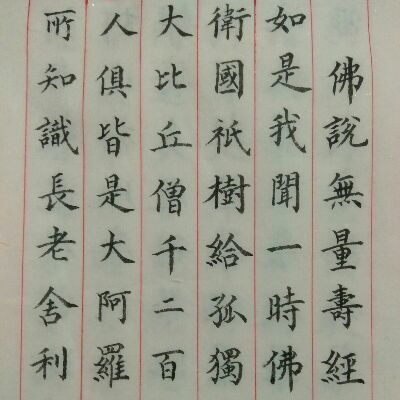 佛說無量壽經
如是我聞一時佛
衛國祇樹給孤獨
大比丘僧千二百
人俱皆是大阿羅
所知識長老舍利